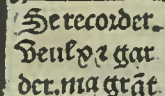 Se recorder.
Veulx ⁊ gar
der. ma grãt